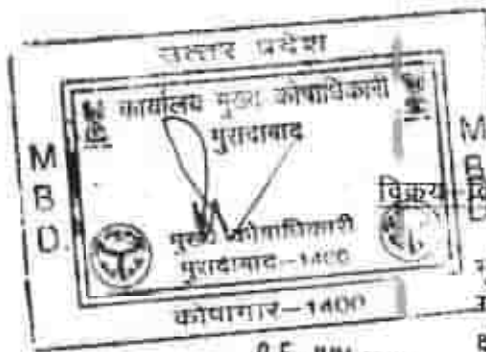 उत्तर प्रदेश
कार्यालय मुख्य कोषाधिकारी
मुरादाबाद
M
B
D
M
B
D
विक्रय
मुख्य कोषाधिकारी
मुरादाबाद-1400
कोषागार-1400